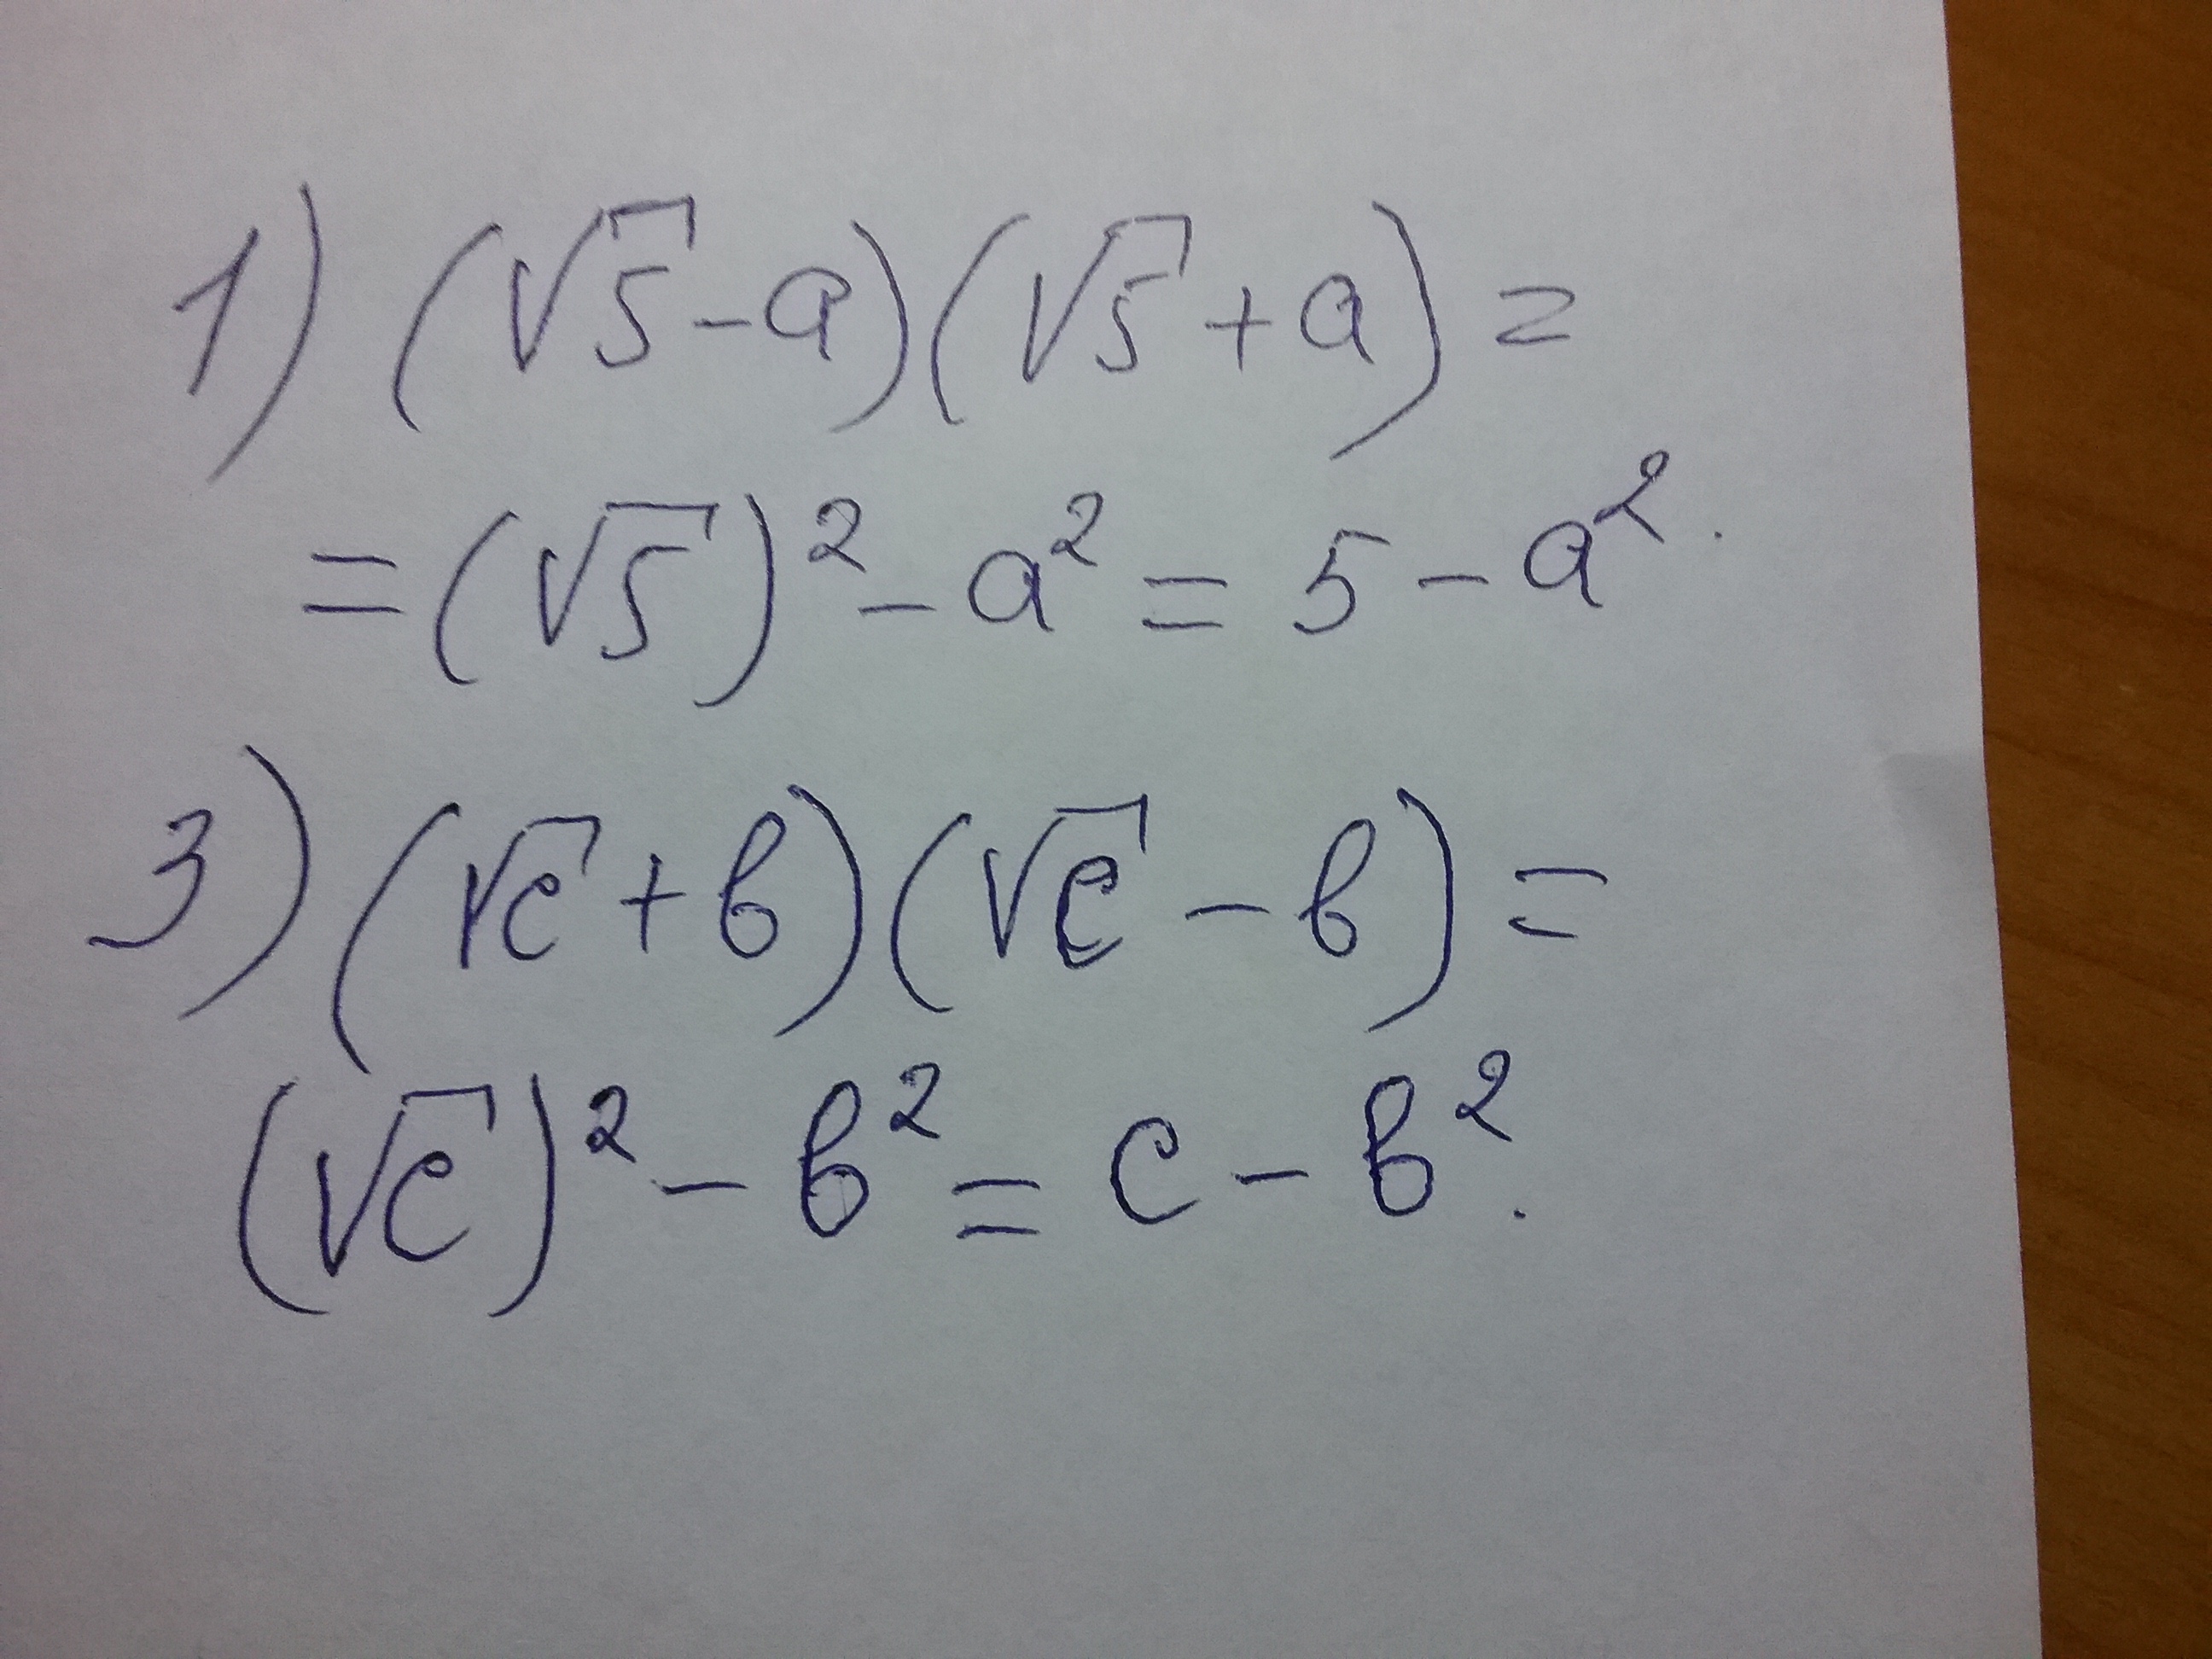 1) (√5 - a)(√5 + a) =
= (√5)² - a² = 5 - a².
3) (√c + b)(√c - b) =
(√c)² - b² = c - b².